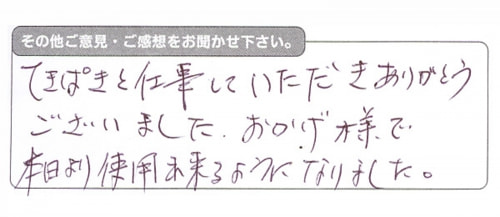 その他ご意見・ご感想をお聞かせ下さい。
てきぱきと仕事していただきありがとう
ございました。おかげ様で
本日より使用出来るようになりました。